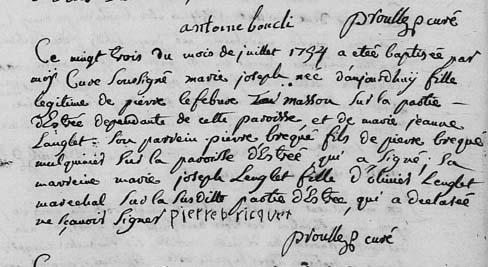 antoine boucli proullez curé
Ce vingt trois du mois de juillet 1754 a etéé baptisée par
moy Curé Soussigné marie joseph née d'aujourdhuy fille
legitime de pierre lefebure masson sur la partie
d'Estréé dependante de cette paroisse et de marie jeanne
Lenglet. Son parrein pierre brequé fils de pierre brequé
mulquinier sur la paroisse d'Estréé qui a signé, Sa
marreine marie joseph Lenglet fille d'olivier Lenglet
marechal sur la susditte partie d'Estrée, qui a declaréé
ne sçavoir signer pierre bricquet
proullez curé